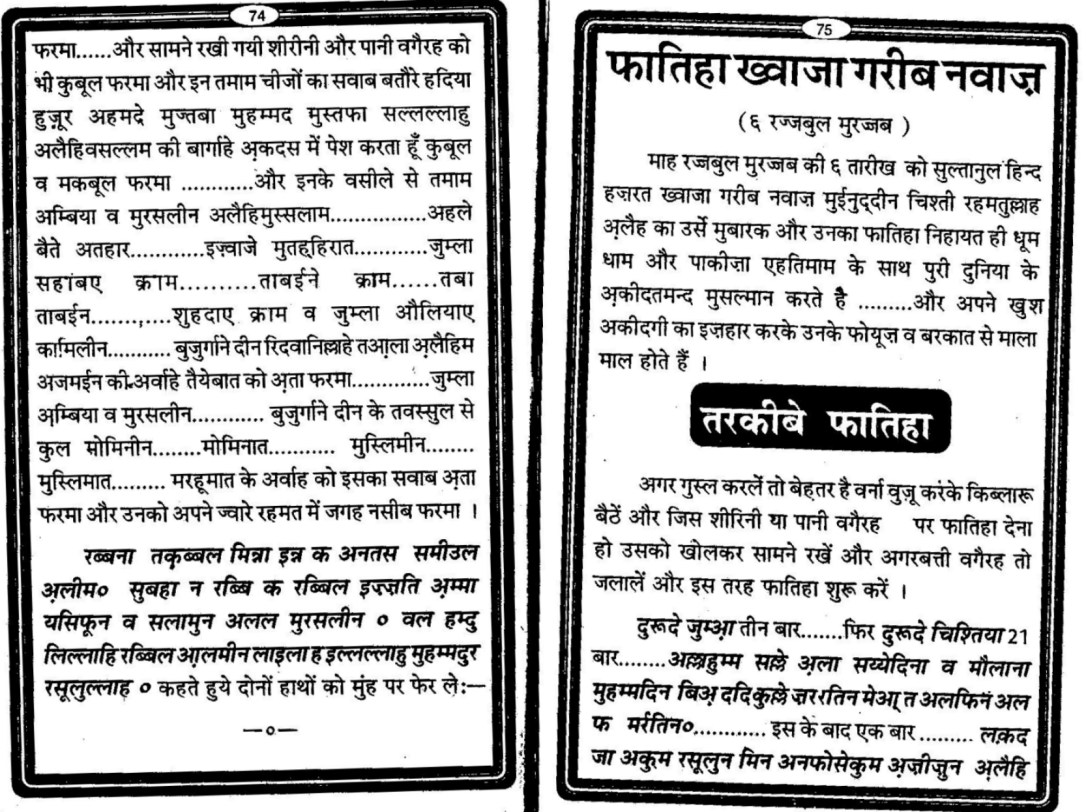 74
फरमा......और सामने रखी गयी शीरीनी और पानी वगैरह को
भी कुबूल फरमा और इन तमाम चीजों का सवाब बतौरे हदिया
हुज़ूर अहमदे मुज्तबा मुहम्मद मुस्तफा सल्लल्लाहु
अलैहिवसल्लम की बार्गाहे अ़कदस में पेश करता हूँ कुबूल
व मकबूल फरमा ............और इनके वसीले से तमाम
अम्बिया व मुरसलीन अलैहिमुस्सलाम................अहले
बैते अतहार............इज़्वाजे मुतह्हिरात............जुम्ला
सहांबए क्राम...........ताबईने क्राम......तबा
ताबईन.......,....शुहदाए क्राम व जुम्ला औलियाए
कामिलीन........... बुजुर्गाने दीन रिदवानिल्लाहे तआ़ला अ़लैहिम
अजमईन की अर्वाहे तैयेबात को अ़ता फरमा.............जुम्ला
अ़म्बिया व मुरसलीन............ बुजुर्गाने दीन के तवस्सुल से
कुल मोमिनीन........मोमिनात........... मुस्लिमीन........
मुस्लिमात......... मरहूमात के अर्वाह को इसका सवाब अ़ता
फरमा और उनको अपने ज्वारे रहमत में जगह नसीब फरमा ।
रब्बना तक़ब्बल मिन्ना इन्न क अनतस समीउल
अ़लीम० सुबहा न रब्बि क रब्बिल इज़्ज़ति अ़म्मा
यसिफून व सलामुन अलल मुरसलीन ० वल हम्दु
लिल्लाहि रब्बिल आ़लमीन लाइला ह इल्लल्लाहु मुहम्मदुर
रसूलुल्लाह ० कहते हुये दोनों हाथों को मुंह पर फेर ले:—
—०—
75
फातिहा ख्वाजा गरीब नवाज़
(६ रज्जबुल मुरज्जब )
माह रज्जबुल मुरज्जब की ६ तारीख को सुल्तानुल हिन्द
हज़रत ख्वाजा गरीब नवाज मुईनुद्दीन चिश्ती रहमतुल्लाह
अ़लैह का उर्से मुबारक और उनका फातिहा निहायत ही धूम
धाम और पाकीज़ा एहतिमाम के साथ पुरी दुनिया के
अ़कीदतमन्द मुसल्मान करते है .........और अपने खुश
अकीदगी का इज़हार करके उनके फोयूज़ व बरकात से माला
माल होते हैं ।
तरकीबे फातिहा
अगर गुस्ल करलें तो बेहतर है वर्ना वुज़ू करके किब्लारू
बैठें और जिस शीरिनी या पानी वगैरह पर फातिहा देना
हो उसको खोलकर सामने रखें और अगरबत्ती वगैरह तो
जलालें और इस तरह फातिहा शुरू करें ।
दुरूदे जुम्आ़ तीन बार.......फिर दुरूदे चिश्तिया 21
बार........अल्लाहुम्म सल्ले अ़ला सय्येदिना व मौलाना
मुहम्मदिन बिअ़ ददि कुल्ले ज़ररतिन मेआ् त अलफिन अल
फ मर्रतिन०............ इस के बाद एक बार ......... लक़द
जा अकुम रसूलुन मिन अनफोसेकुम अ़ज़ीज़ुन अ़लैहि